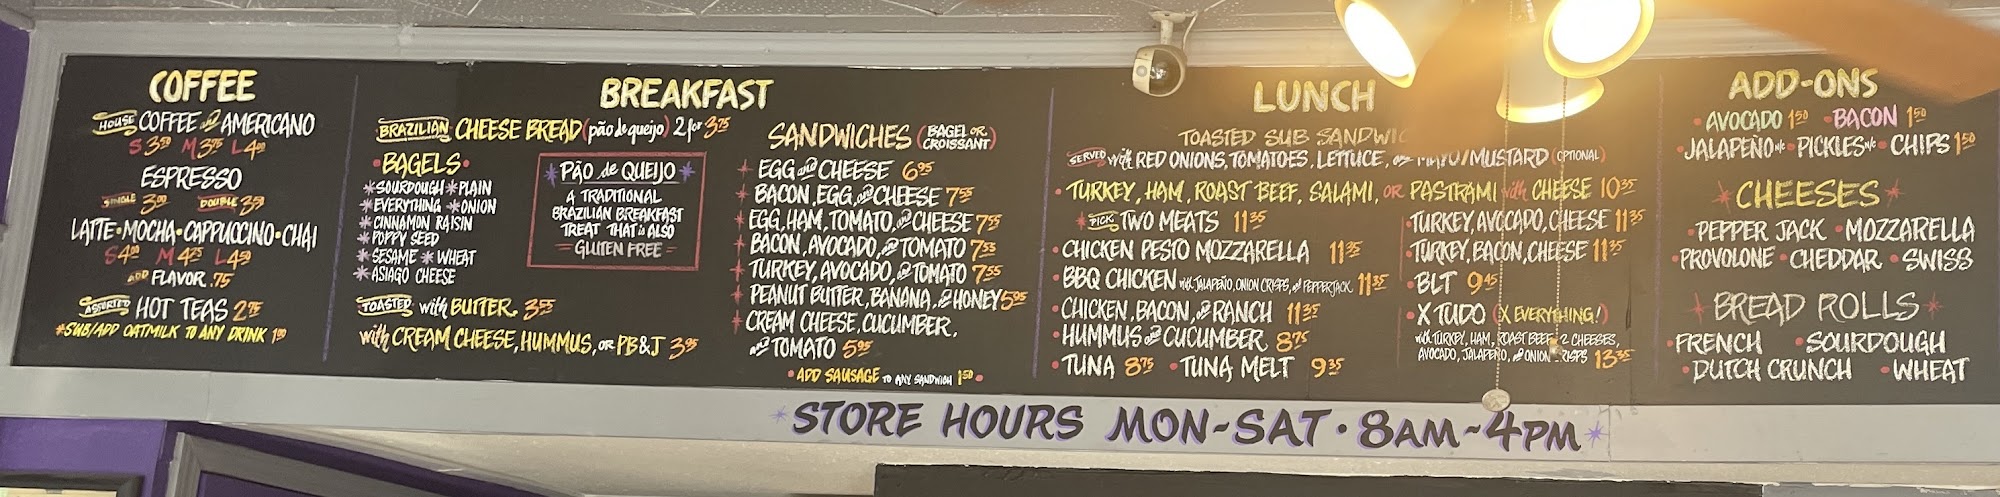 COFFEE
HOUSE COFFEE and AMERICANO
S 3.50 M 3.75 L 4.00
ESPRESSO
SINGLE 3.00 DOUBLE 3.50
LATTE • MOCHA • CAPPUCCINO • CHAI
S 4.00 M 4.25 L 4.50
ADD FLAVOR .75
ASSORTED HOT TEAS 2.75
*SUB/ADD OATMILK TO ANY DRINK 1.00
BREAKFAST
BRAZILIAN CHEESE BREAD (pão de queijo) 2 for 3.75
• BAGELS •
*SOURDOUGH *PLAIN
*EVERYTHING *ONION
*CINNAMON RAISIN
*POPPY SEED
*SESAME *WHEAT
*ASIAGO CHEESE
*PÃO de QUEIJO*
A TRADITIONAL
BRAZILIAN BREAKFAST
TREAT THAT is ALSO
GLUTEN FREE
TOASTED with BUTTER 3.55
with CREAM CHEESE, HUMMUS, OR PB&J 3.95
SANDWICHES (BAGEL OR CROISSANT)
EGG and CHEESE 6.95
BACON, EGG, and CHEESE 7.55
EGG, HAM, TOMATO, and CHEESE 7.55
BACON, AVOCADO, and TOMATO 7.55
TURKEY, AVOCADO, and TOMATO 7.55
PEANUT BUTTER, BANANA, and HONEY 5.95
CREAM CHEESE, CUCUMBER,
and TOMATO 5.95
• ADD SAUSAGE TO ANY SANDWICH 1.50 •
LUNCH
TOASTED SUB
SERVED with RED ONIONS, TOMATOES, LETTUCE, and MAYO/MUSTARD (OPTIONAL)
• TURKEY, HAM, ROAST BEEF, SALAMI, OR PASTRAMI with CHEESE 10.35
• PICK TWO MEATS 11.35
• CHICKEN PESTO MOZZARELLA 11.35
• BBQ CHICKEN with JALAPEÑO, ONION CRISPS, and PEPPERJACK 11.35
• CHICKEN, BACON, and RANCH 11.35
• HUMMUS and CUCUMBER 8.75
• TUNA 8.75 • TUNA MELT 9.35
• TURKEY, AVOCADO, CHEESE 11.35
• TURKEY, BACON, CHEESE 11.35
• BLT 9.45
• X TUDO (X EVERYTHING!)
with TURKEY, HAM, ROAST BEEF, 2 CHEESES,
AVOCADO, JALAPEÑO, and ONION CRISPS 13.35
ADD-ONS
• AVOCADO 1.50 • BACON 1.50
• JALAPEÑO N/C • PICKLES N/C • CHIPS 1.50
CHEESES
• PEPPER JACK • MOZZARELLA
• PROVOLONE • CHEDDAR • SWISS
BREAD ROLLS
• FRENCH • SOURDOUGH
• DUTCH CRUNCH • WHEAT
*STORE HOURS MON-SAT • 8AM-4PM*